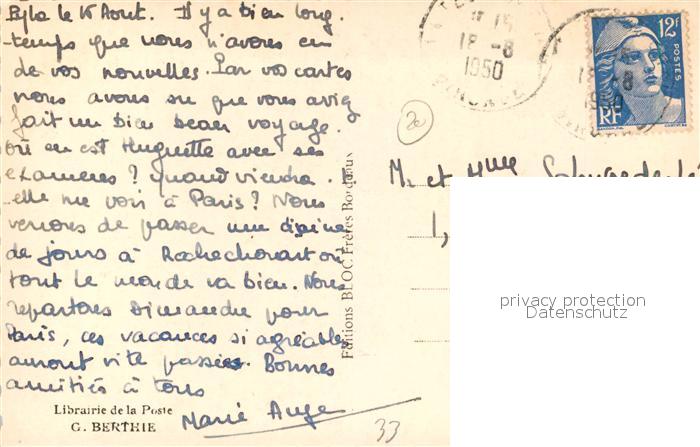 Pyla le 15 Août. Il y a bien long-
temps que nous n'avons eu
de vos nouvelles. Par vos cartes
nous avons su que vous aviez
fait un bien beau voyage.
où en est Huguette avec ses
examens? quand viendra-t-
elle me voir à Paris? Nous
venons de passer une dizaine
de jours à Rochechouart où
tout le monde va bien. Nous
repartons Dimanche pour
Paris, ces vacances si agréables
auront vite passées. Bonnes
amitiés à tous
Marie Ange
Librairie de la Poste
G. BERTHIE
Editions BLOC Frères Bordeaux
18 -8
1950
12F
POSTES
RF
18 -8
1950
20
M. et Mme
1,
privacy protection
Datenschutz
33